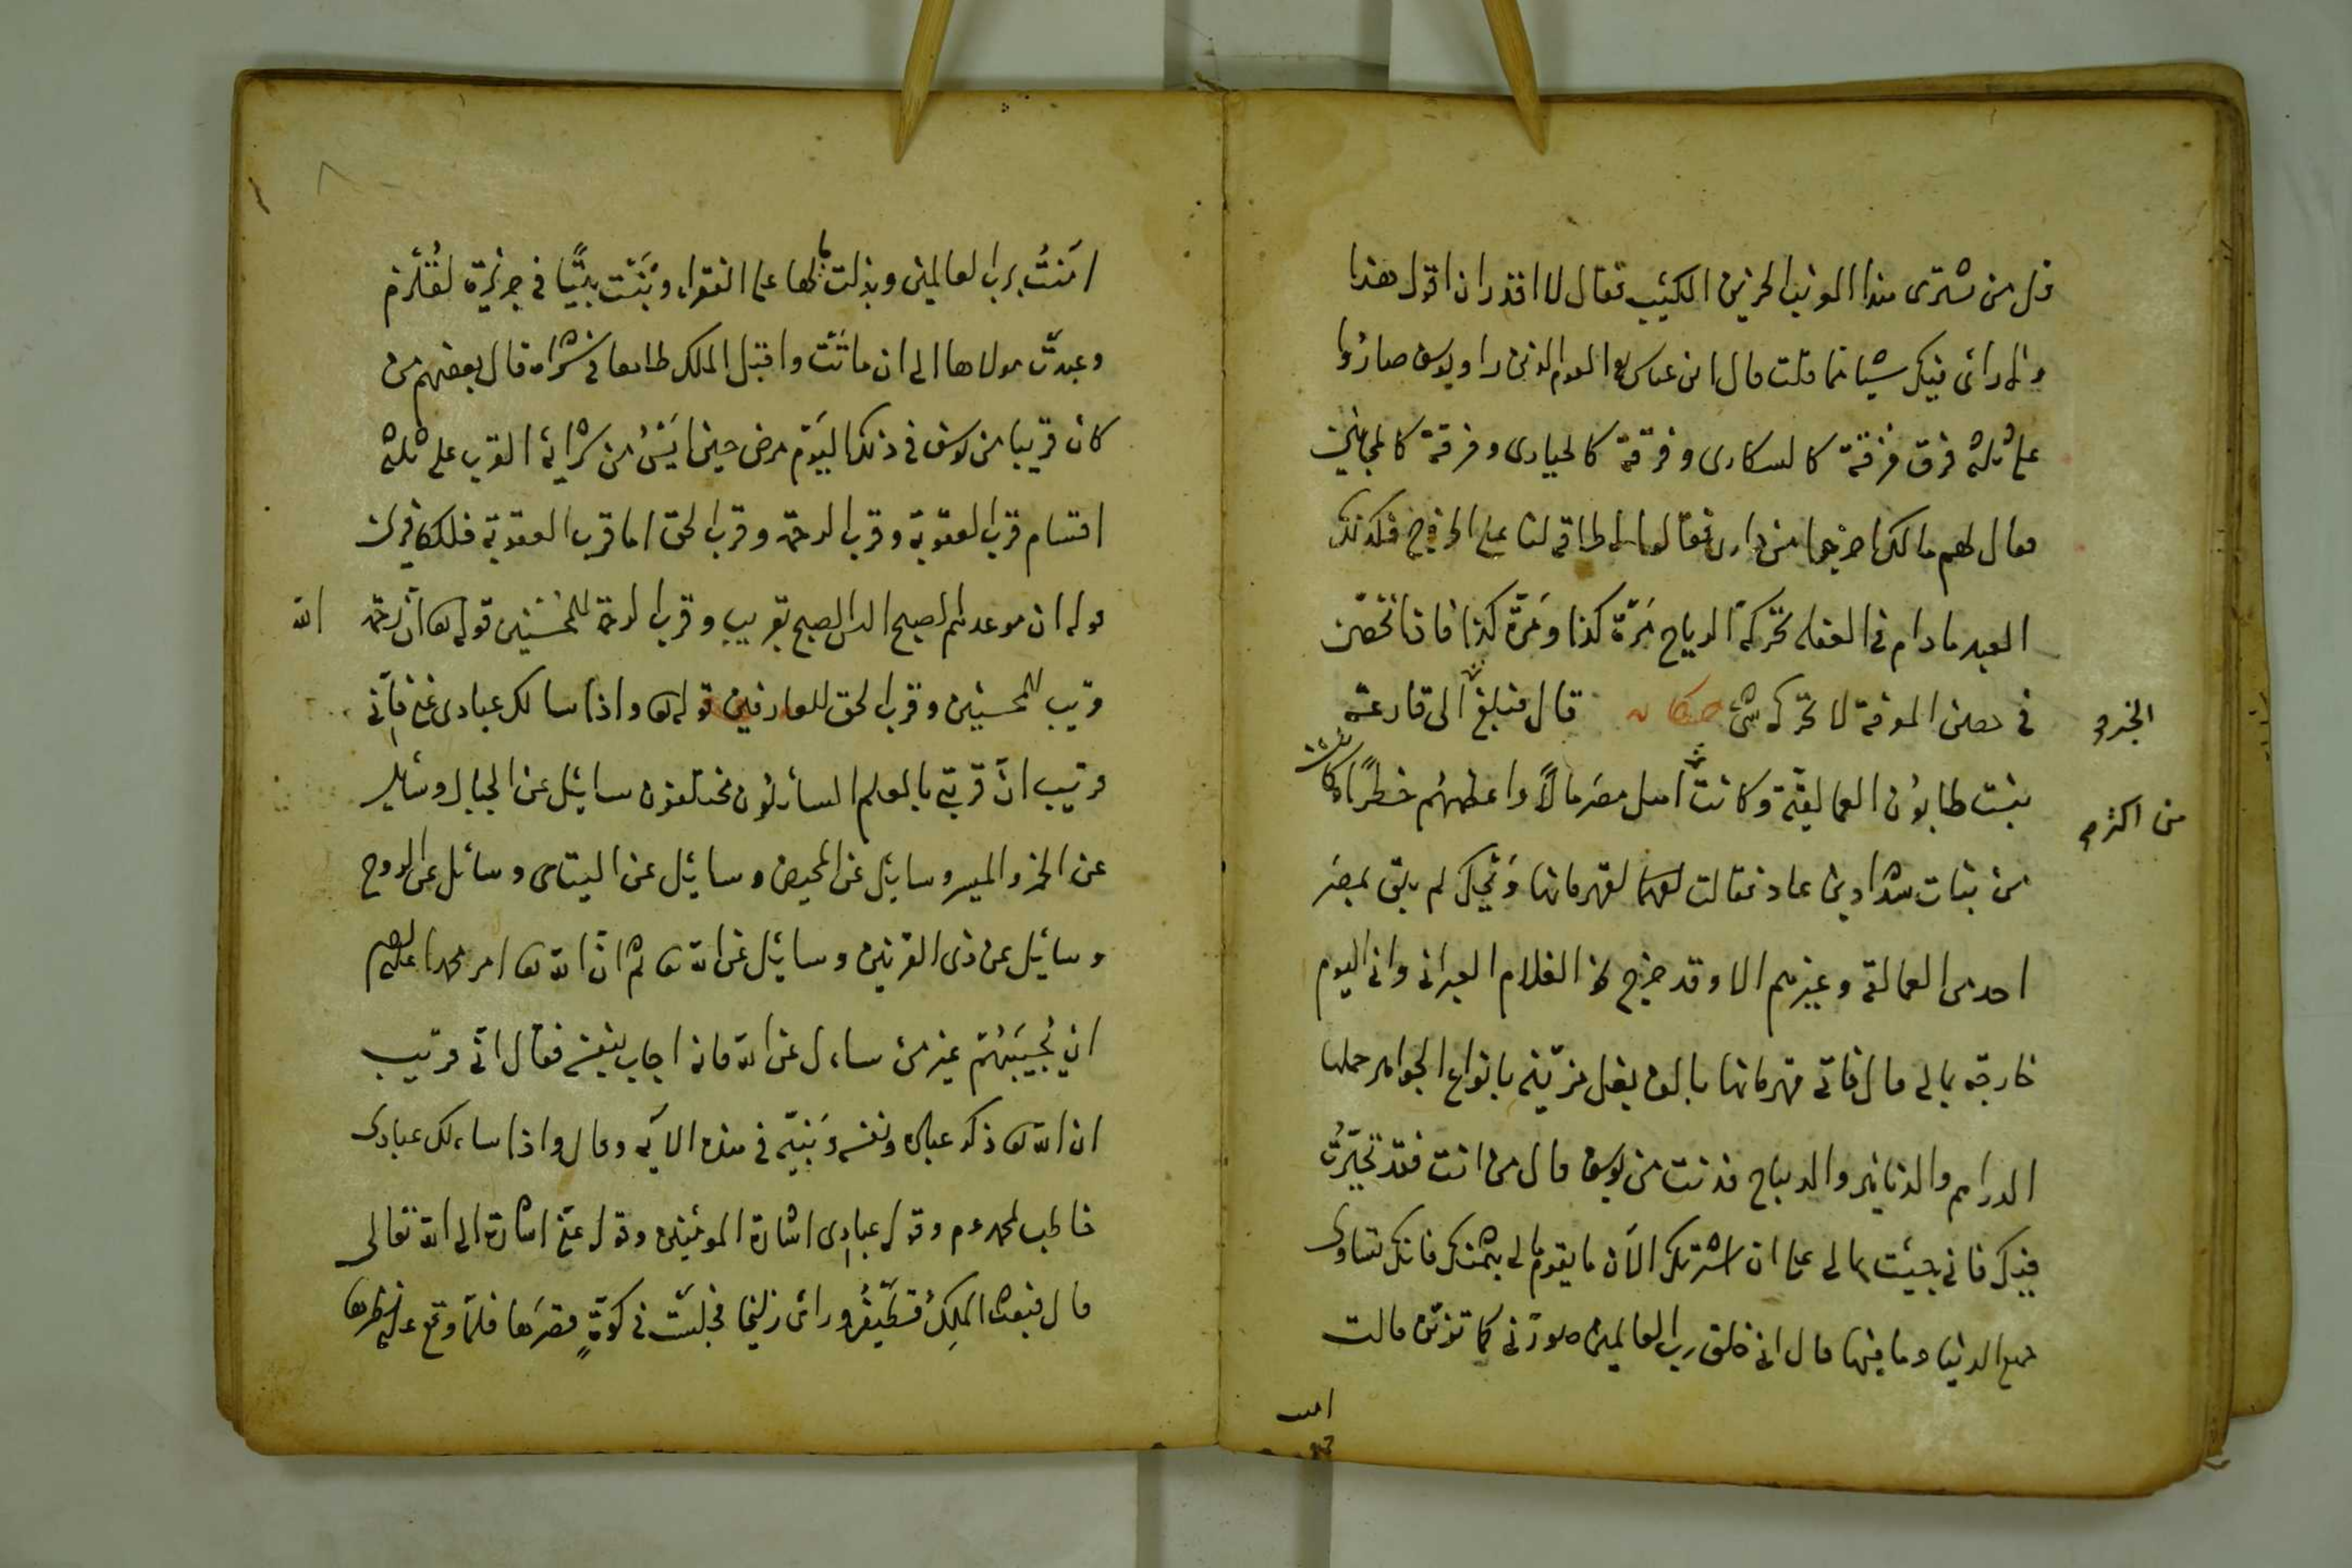 قل من يشترى هذا الغريب الحزين الكئيب فقال لا اقدر ان اقول هذا
والله راى فيك شيا كما قلت قال ابن عباس القوم الذين راو يوسف صاروا
على ثلثة فرق فرقة كالسكارى وفرقة كالحيارى وفرقة كالمجانين
فقال لهم مالك اخرجوا من دارى فقالوا لا طاقة لنا على الخروج فكذلك
العبد ما دام فى الغفلة تحركه الرياح مرّة كذا ومرّة كذا فاذا تحصّن
فى حصن المعرفة لا تحركه شئ حكاية قال فبلغ الى قارعة
الخبر
بنت طابون العمالقة وكانت اهل مصر مالاً واعظمهم خطراً وكانت
من اكثر
من بنات شداد بن عاد فقالت لقهرمانها ويحك لم يبق بمصر
احد من العمالقة وغيرهم الا وقد خرج لهذا الغلام العبرانى وانى اليوم
خارجة بمالى قال فاتى قهرمانها بالف بغل مزيّنة بانواع الجواهر حملها
الدراهم والدنانير والديباج فدنت من يوسف قال من انت فقد تحيّرت
فيك فانى جيئت بمالى على ان اشتريك الآن ما يقوم مالى بثمنك فانك تساوى
جميع الدنيا وما فيها قال انى خلق رب العالمين صورنى كما ترين قالت
امنت
امنتُ برب العالمين وبذلت مالها على الفقراء وبنت بيتًا فى جزيرة لقلزم
وعبدت مولاها الى ان ماتت واقبل الملك طامعا فى شراه قال بعضهم من
كان قريبا من يوسف فى ذلك اليوم مرض حين ايس من شرايه القرب على ثلثة
اقسام قرب العقوبة وقرب الرحمة وقرب الحق اما قرب العقوبة فللكافرين
قوله ان موعدهم الصبح اليس الصبح بقريب وقرب الرحمة للمحسنين قوله تعا ان رحمة الله
قريب للمحسنين وقرب الحق للعارفين قوله تعا واذا سالك عبادى عنى فانى
قريب انّ قربى بالعلم السائلون مختلفون سايل عن الجبال وسايل
عن الخمر والميسر وسايل عن المحيض وسايل عن اليتامى وسائل عن الروح
وسايل عن ذى القرنين وسايل عن الله تعا ثم انّ الله تعا امر محمدا عليه السلم
ان يجيبهم غير من ساءل عن الله فانه اجاب بنفسه فقال انّى قريب
ان الله تعا ذكر عباده ونفسه ونبيّه فى هذه الآية وقال واذا ساءلك عبادى
خاطب لمحمد عم وقوله عبادى اشارة المومنين وقوله عنّى اشارة الى الله تعالى
قال فبعث الملك قطيفر وراى زليخا فجلست فى كوّةٍ قصرها فلمّا وقع عليه نظرها